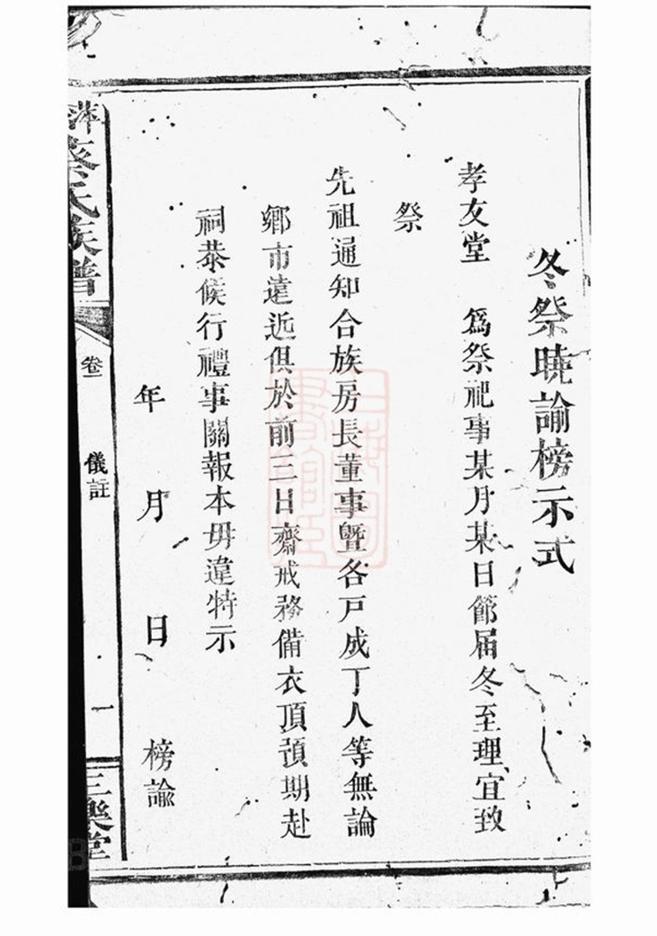 冬祭曉諭榜示式
孝友堂 爲祭祀事某月某日節届冬至理宜致
祭
先祖通知合族房長董事曁各戸成丁人等無論
鄉市遠近俱於前三日齋戒務備衣頂預期赴
祠恭候行禮事關報本毋違特示
年 月 日 榜諭
萍蔡氏族譜
卷一
儀註
一
三樂堂